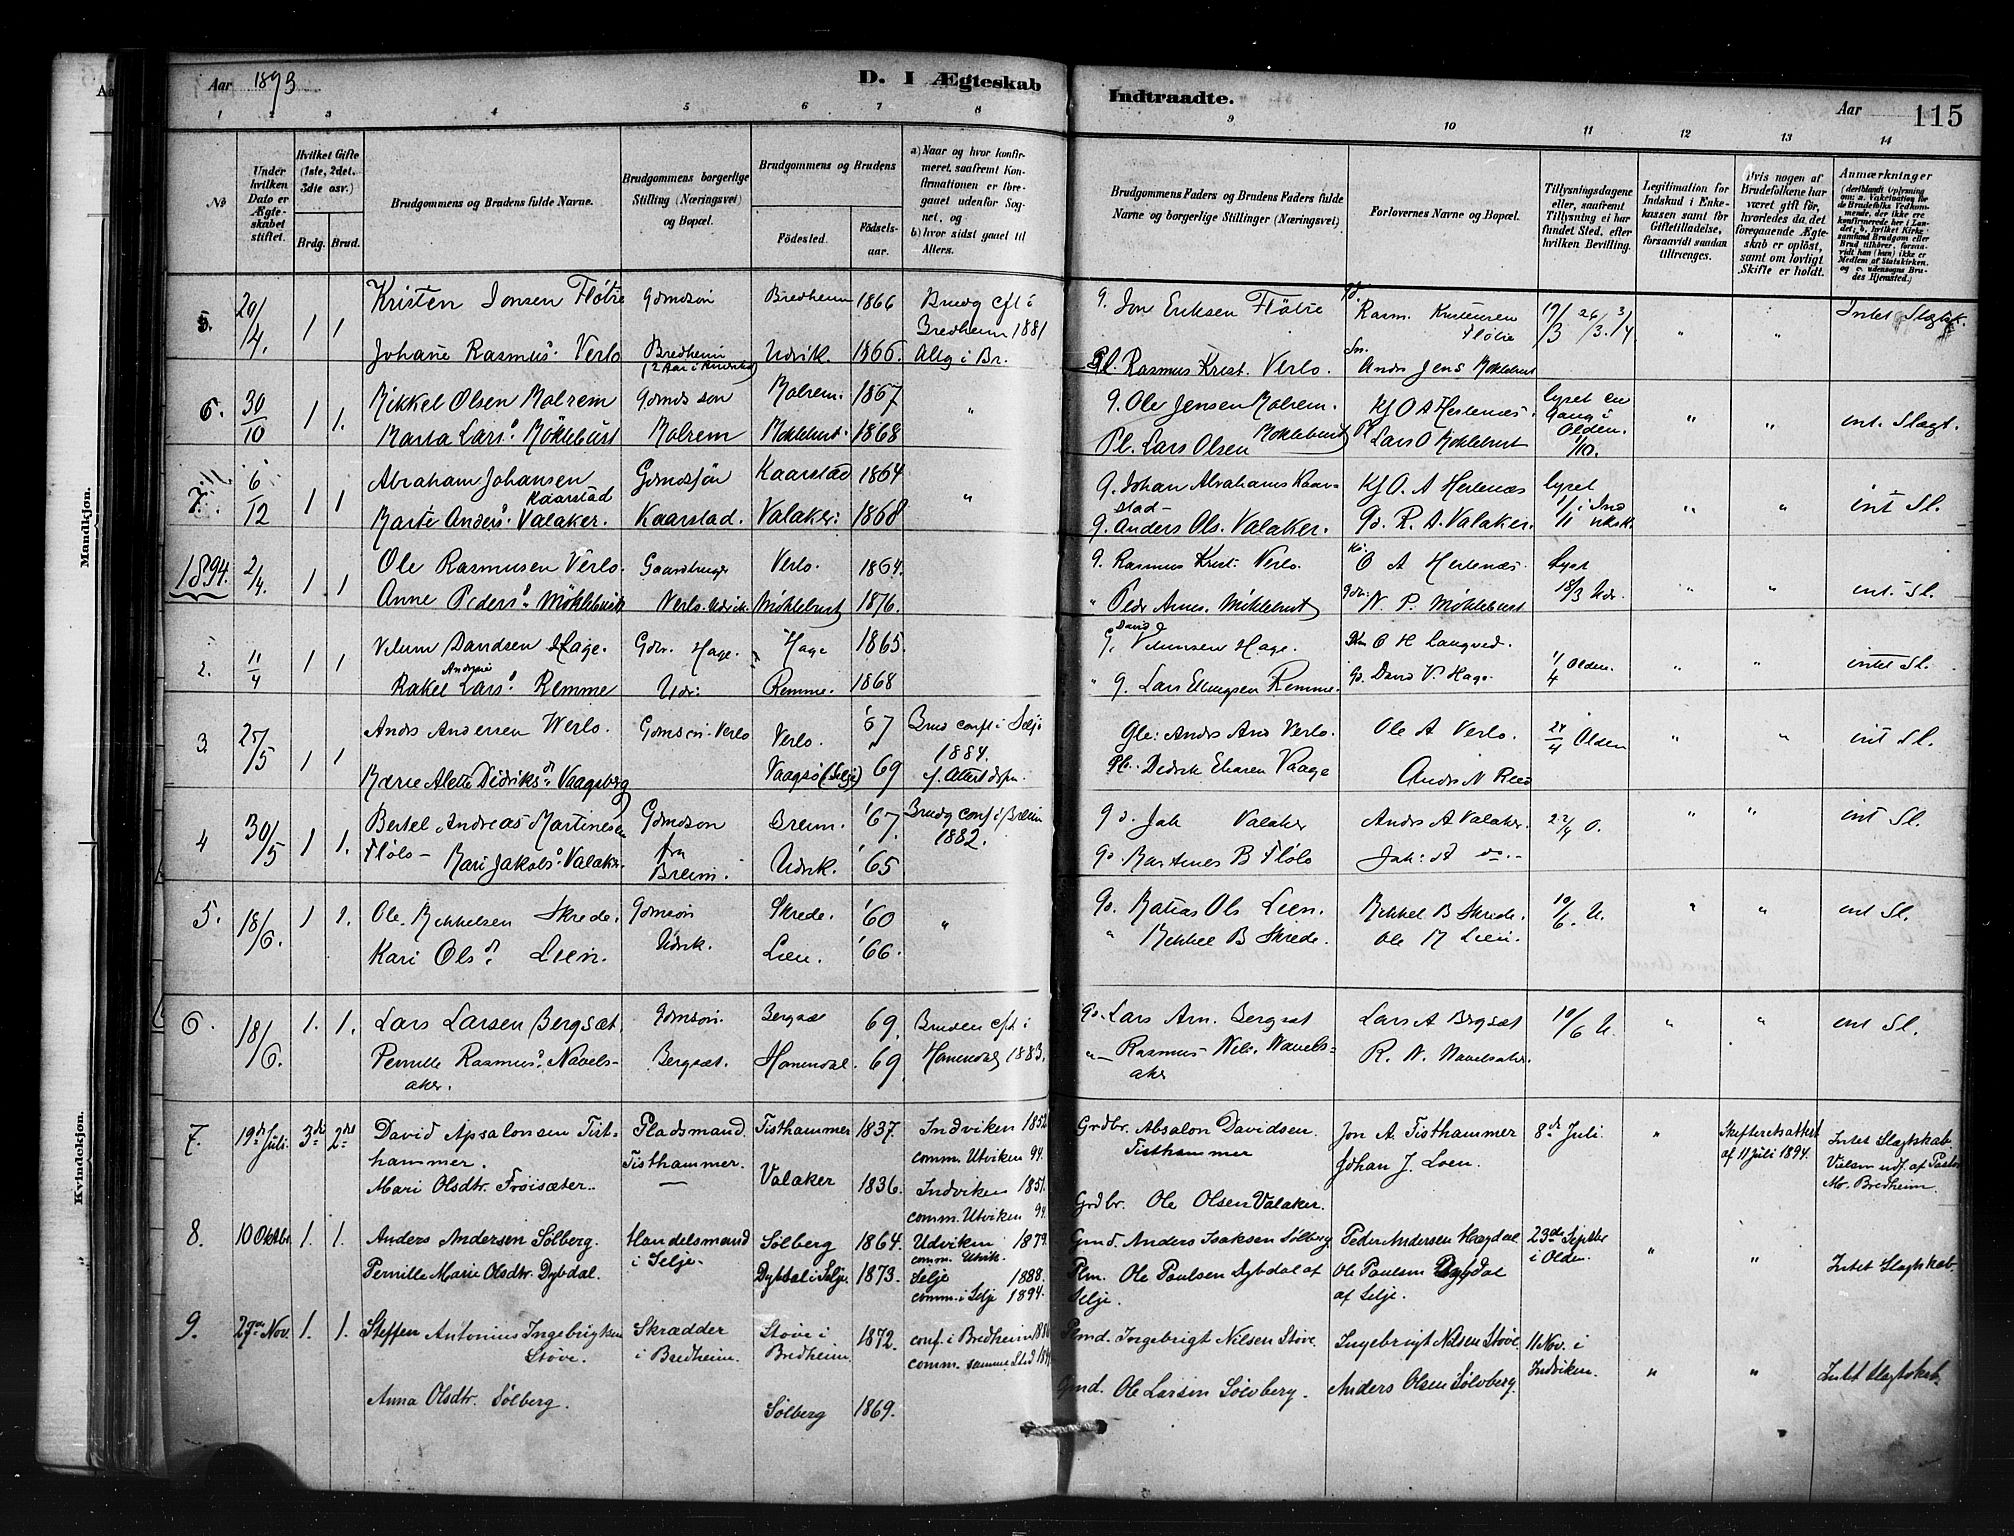 Aar 1893
D. I Ægteskab
Indtraadte.
Aar
115
1 2 3 4 5 6 7 8 9 10 11 12 13 14
№
Under hvilken Dato er Ægteskabet stiftet.
Hvilket Gifte (1ste, 2det, 3die osv.)
Brdg. Brud.
Brudgommens og Brudens fulde Navne.
Brudgommens borgerlige Stilling (Næringsvei) og Bopæl.
Brudgommens og Brudens
Fødested.
Fødselsaar.
a) Naar og hvor konfirmeret, saafremt Konfirmationen er foregaaet udenfor Sognet, og
b) hvor sidst gaaet til Alters.
Brudgommens Faders og Brudens Faders fulde Navne og borgerlige Stillinger (Næringsvei)
Forlovernes Navne og Bopæl.
Tillysningsdagene eller, saafremt Tillysning ei har fundet Sted, efter hvilken Bevilling.
Legitimation for Indskud i Enkekassen samt for Giftetilladelse, forsaavidt saadan tiltrænges.
Hvis nogen af Brudefolkene har været gift før, hvorledes da det foregaaende Ægteskab er opløst, samt om lovligt Skifte er holdt.
Anmærkninger
5. 20/4. 1 1 Kristen Jonsen Fløtre Gdmdsøn Bredheim 1866 Brudg cft i Bredheim 1881
Johane Rasmusd. Verlo Bredheim (2 Aar i Amerika) Udvik. 1866. Altg i Br.
g. Jon Eriksen Fløtre Rasm. Kristensen Fløtre 19/3 26/3. 3/4 " " Intet Slagtsk.
Pl. Rasmus Krist. Verlo. Anders Jens Møklebust
6. 30/10 1 1. Mikkel Olsen Molrem Gdmds søn Molrem. 1867 "
Marta Larsd. Møklebust Molrem Møklebust. 1868
g. Ole Jensen Molrem. Kf O A Hestenæs. lyset en Gang i Olden. 1/10. " " int. Slagt.
Pl. Lars Olsen Møklebust Lars O Møklebust
7. 6/12 1 1 Abraham Johansen Kaarstad Gdmdssøn Kaarstad 1864 "
Marte Andersd. Valaker. Kaarstad. Valaker. 1868
g. Johan Abrahams Kaarstad Kf O. A Hestenæs lyset " " int Sl.
g. Anders Ols. Valaker. Gd. R. A. Valaker.
1894. 2/4. 1 1 Ole Rasmusen Verlo. Gaardbruger Verlo. 1864.
Anne Pedersd. Møklebust Verlo. Udvik Møklebust 1876.
g. Rasmus Krist. Verlo. O A Hestenæs. lyst 18/3 Udv. " " int. Sl.
" Peder Arnes. Møklebust N. P. Møklebust
2. 11/4 1 1 Vilum Davidsen Hage. Gdbr. Hage. Hage 1865
Rakel Andrine Larsd. Remme Udv. Remme. 1868
G. David Vilumsen Hage. O H Langved. 1/4 Olden. " " intet Sl.
" g. Lars Ellingsen Remme. Gd. David V. Hage.
3. 25/5 1 1 Anders Andersen Werlo. Gdmsøn. Verlo Verlo. '67 Brud conf i Selje 1884.
Marie Alette Didriksd. Vaagsberg Vaagsø (Selje) 69
Anders And Verlo. Ole A Verlo. 22/4 Olden " " int Sl.
Pl. Didrik Vaage Anders N Reed
4 30/5 1 1. Bertel Andreas Martinesen Flølo – Gdmdsøn Breim. '67. Brudg conf i Breim 1882.
Mari Jakobsd. Valaker. fra Breim. Udvik. '65
gd. Jak Valaker Anders A Valaker. 22/4 O. " " int Sl.
gd. Martines B Flølo Jak. A do.
5. 18/6. 1 1. Ole Mikkelsen Skrede. Gdmsøn Skrede. '60 "
Kari Olsd. Lien. Udvik. Lien. '66.
gd. Matias Ols Lien. Mikkel B Skrede. 10/6. U. " " int Sl.
" Mikkel B Skrede. Ole M Lien.
6. 18/6. 1. 1. Lars Larsen Bergsæt. Gdmsøn. Bergsæt 69. Bruden cft i
Pernille Rasmusd. Navelsaker. Bergsæt. Hornindal. 69 Hornindal 1883.
gd. Lars Arn. Bergsæt Lars A Bergsæt 10/6 U. " " int Sl.
"– Rasmus Nels. Navelsaker R. N. Navelsaker.
7. 19de Juli. 3de 2det David Apsalonsen Tisthammer. Pladsmand. Tisthammer. Tisthammer 1837. Indviken 1852. comm. Utviken 94.
Mari Olsdtr. Frøisæter. — Valaker 1836. Indviken 1851. comm. Utviken 94.
Grdbr. Absalon Davidsen Tisthammer Jon A. Tisthammer 8de Juli. " Skifteretsattest af 11 Juli 1894. Intet Slagtskab. Vielsen udf. af Pastor Mo. Bredheim.
Johan J. Loen.
Grdbr. Ole Olsen Valaker.
8. 10 Oktbr. 1. 1. Anders Andersen Sølberg. Handelsmand i Selje. Sølberg 1864. Udviken 1879. comm. Utvik.
Pernille Marie Olsdtr. Dybdal. Dybdal i Selje. 1873. Selje 1888. comm. i Selje 1894.
Gmd. Anders Isaksen Sølberg Peder Andersen Hægdal 23de Septbr i Olden. " " Intet Slagtskab.
Plm. Ole Paulsen Dybdal af Selje. Ole Paulsen Dybdal af Selje.
9. 27de Nov. 1. 1. Steffen Antonius Ingebrigtsen Støve. Skrædder i Bredheim. Støve i Bredheim. 1872. conf. i Bredheim comm. samme Sted
Anna Olsdtr. Sølberg. Sølberg 1869.
Pmd. Ingebrigt Nilsen Støve Ingebrigt Nilsen Støve 11 Nov. i Indviken. " " Intet Slagtskab.
Gmd. Ole Larsen Sølvberg. Anders Olsen Sølvberg.
Mandkjøn.
Kvindekjøn.